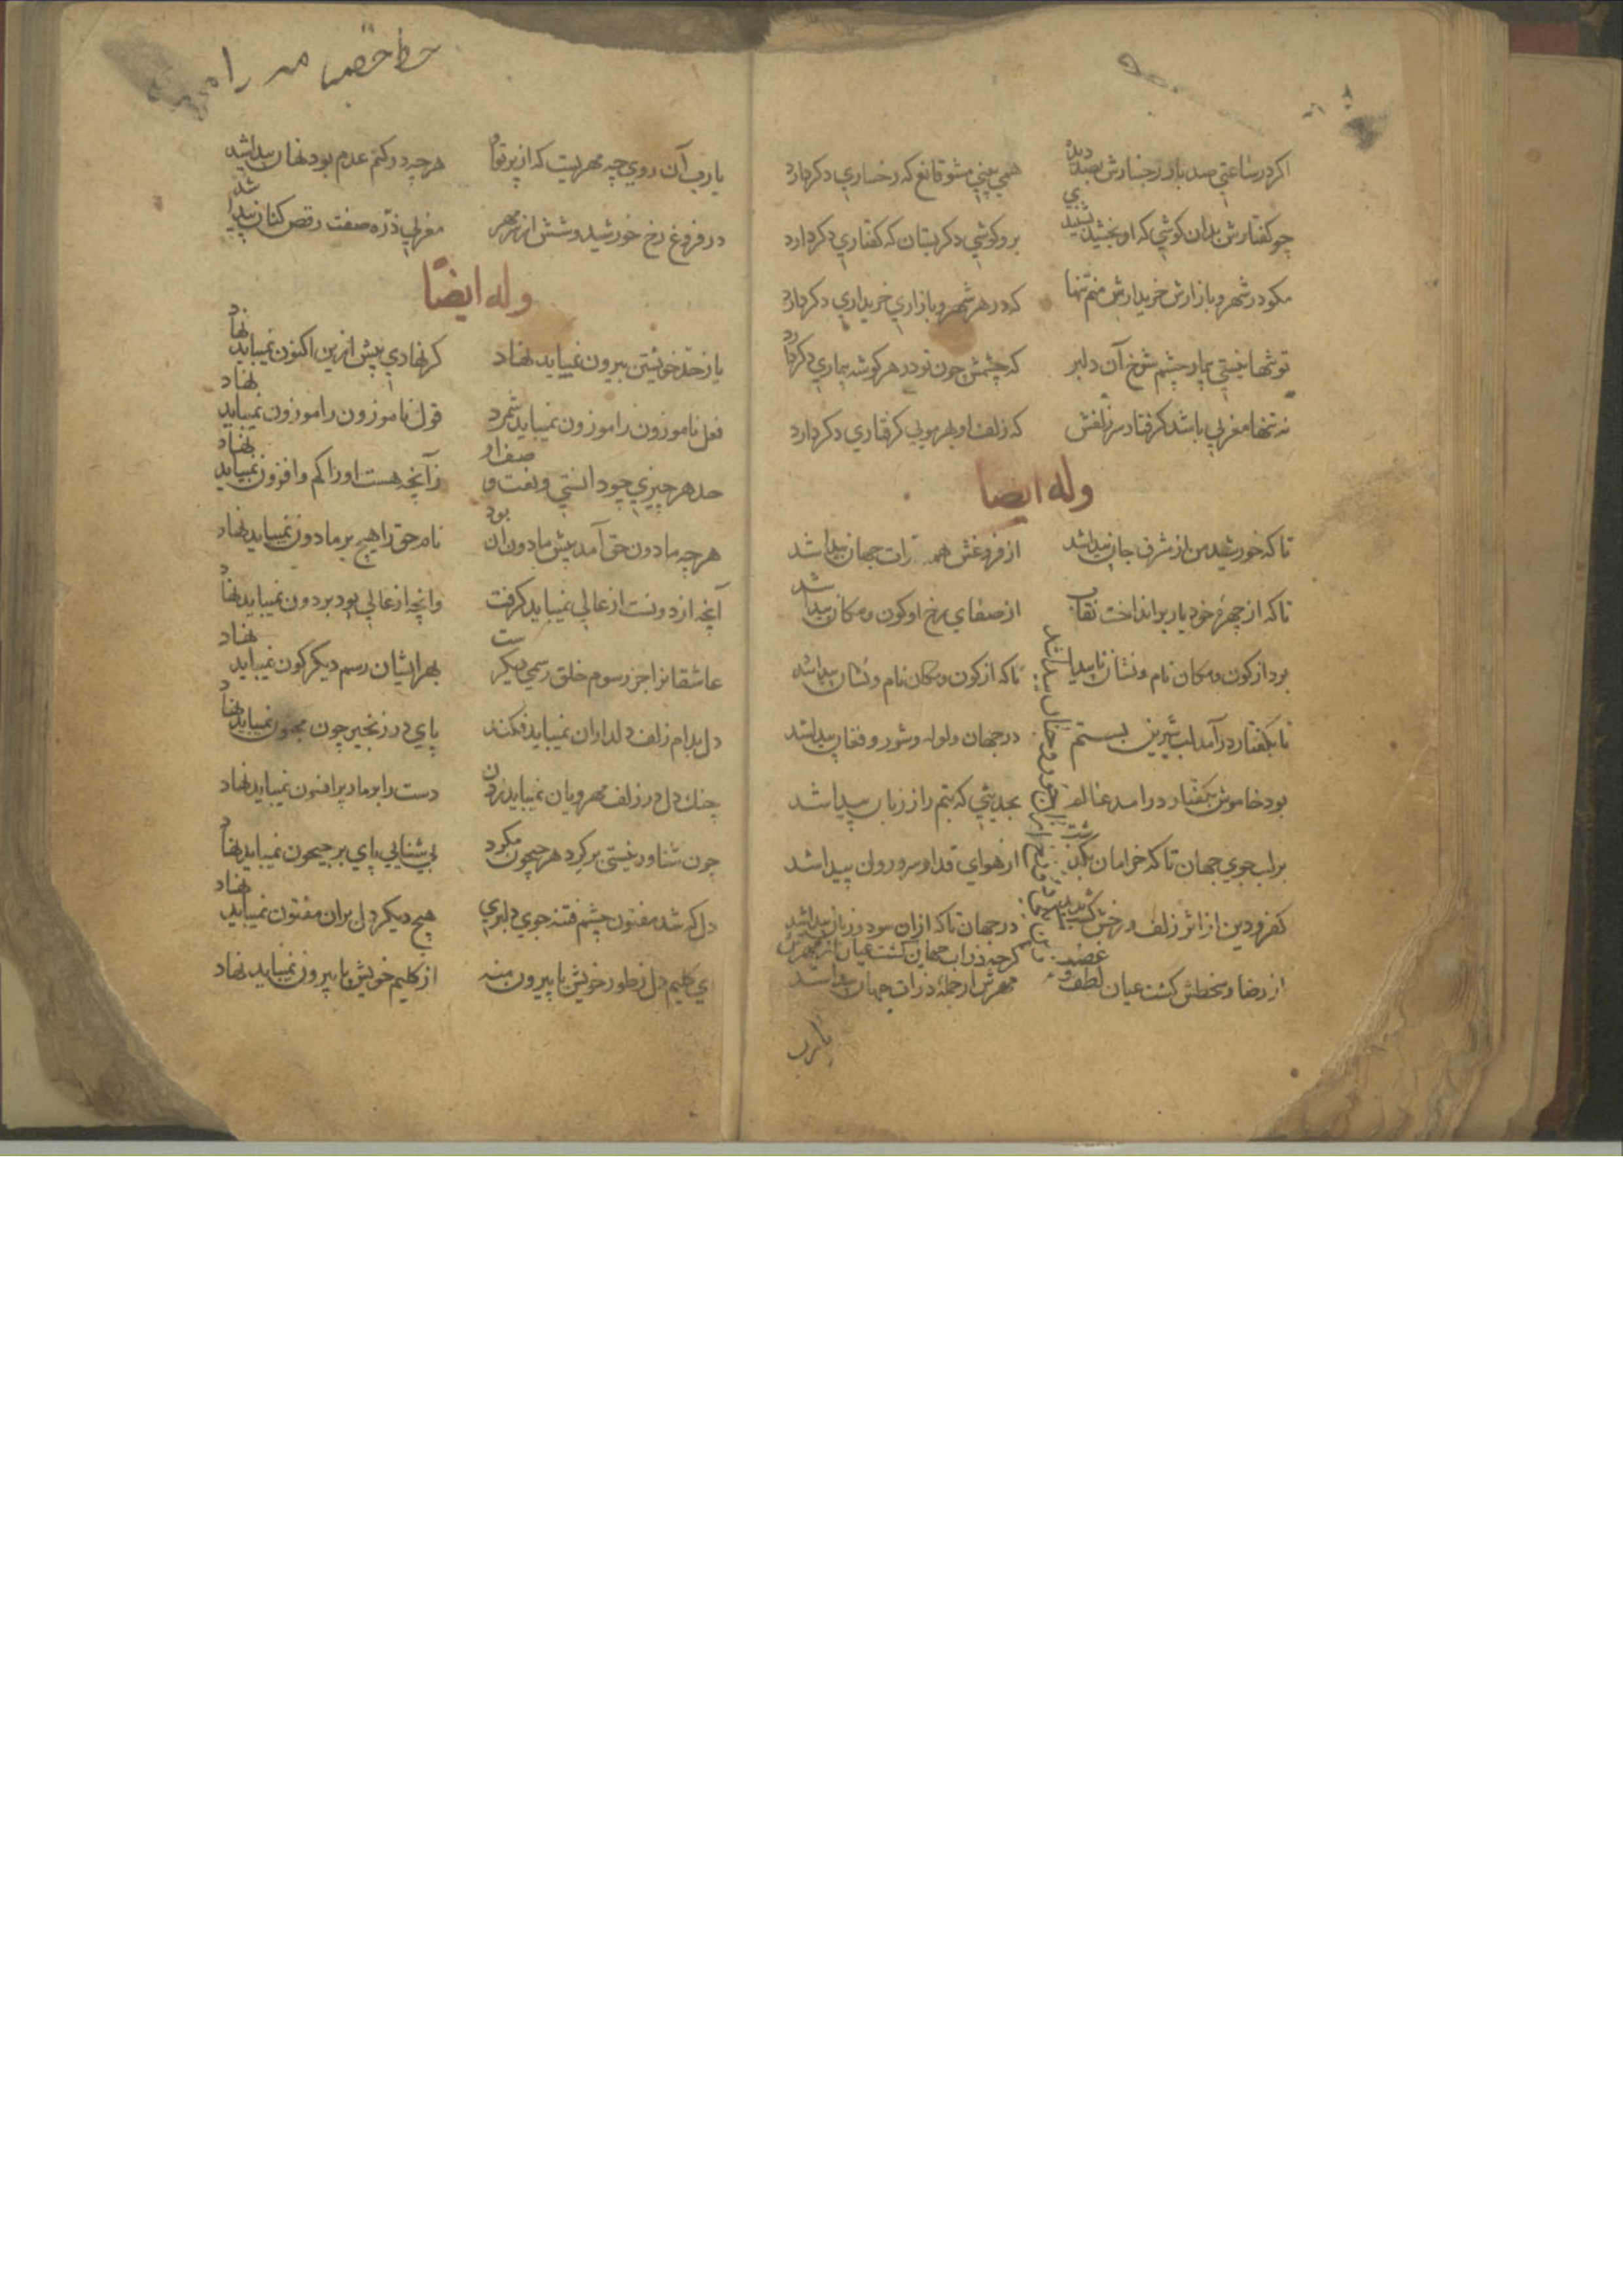 اکر در ساعتی صد بار رخسارش بصد دیده همی بینی مشو قانع که رخساری دکر دارد
چو کفتارش بدان کوشی که او بخشید بشنیدی برو کوشی دکر بستان که کفتاری دکر دارد
مکو در شهر و بازارش خریدارش منم تنها که در هر شهر و بازاری خریداری دکر دارد
تو تنها نیستی بیمار چشم شوخ آن دلبر که چشمش چون تو در هر کوشه بیماری دکر دارد
نه تنها مغربی باشد کرفتار سر زلفش که زلف او بهر مویی کرفتاری دکر دارد
وله ایضا
تا که خورشید من از مشرق جان پیدا شد از فروغش همه ذرات جهان پیدا شد
تا که از چهره خود یار برانداخت نقاب از صفای رخ او کون و مکان پیدا شد
بود از کون و مکان نام و نشان ناپیدا تا که از کون و مکان نام و نشان پیدا شد
تا بکفتار درآمد لب شیرین بستم در جهان ولوله و شور و فغان پیدا شد
بود خاموش بکفتار درآمد عالم بحدیثی که بتم را ز زبان پیدا شد
بر لب جوی جهان تا که خرامان بکذشت از هوای قد او سرو روان پیدا شد
کفر و دین از اثر زلف و رخش کشت پدید در جهان تا که ازان سود و زیان پیدا شد
از رضا و سخطش کشت عیان لطف و غضب
کرچه ذرات جهان کشت عیان از مهرش
مهرش از جمله ذرات جهان پیدا شد
یارب
یارب آن روی چه مهریست که از پرتو او هر چه در کتم عدم بود نهان پیدا شد
در فروغ رخ خورشید وشش از سر مهر مغربی ذره صفت رقص کنان پیدا شد
وله ایضًا
پا ز حد خویشتن بیرون نمیباید نهاد کر نهادی پیش ازین اکنون نمیباید نهاد
فعل ناموزون را موزون نمیباید شمرد قول ناموزون را موزون نمیباید نهاد
حد هر چیزی چو دانستی و نعت و صف او زآنچه هست او را کم و افزون نمیباید نهاد
هر چه مادون حق آمد پیش مادون آن بود نام حق را هیچ بر مادون نمیباید نهاد
آنچه از دونست از عالی نمیباید کرفت وانچه از عالی بود بر دون نمیباید نهاد
عاشقانرا جز رسوم خلق رسمی دیکرست بهر ایشان رسم دیکرکون نمیباید نهاد
دل بدام زلف دلداران نمیباید فکند پای در زنجیر چون مجنون نمیباید نهاد
چنك دل در زلف مهرویان نمیباید زدن دست را بر مار پر افسون نمیباید نهاد
چون شناور نیستی بر کرد هر جیحون مکرد بی شنایی پای بر جیحون نمیباید نهاد
دل که شد مفتون چشم فتنه جوی دلبری هیچ دیکر دل بران مفتون نمیباید نهاد
ای کلیم دل ز طور خویش پا بیرون منه از کلیم خویش پا بیرون نمیباید نهاد